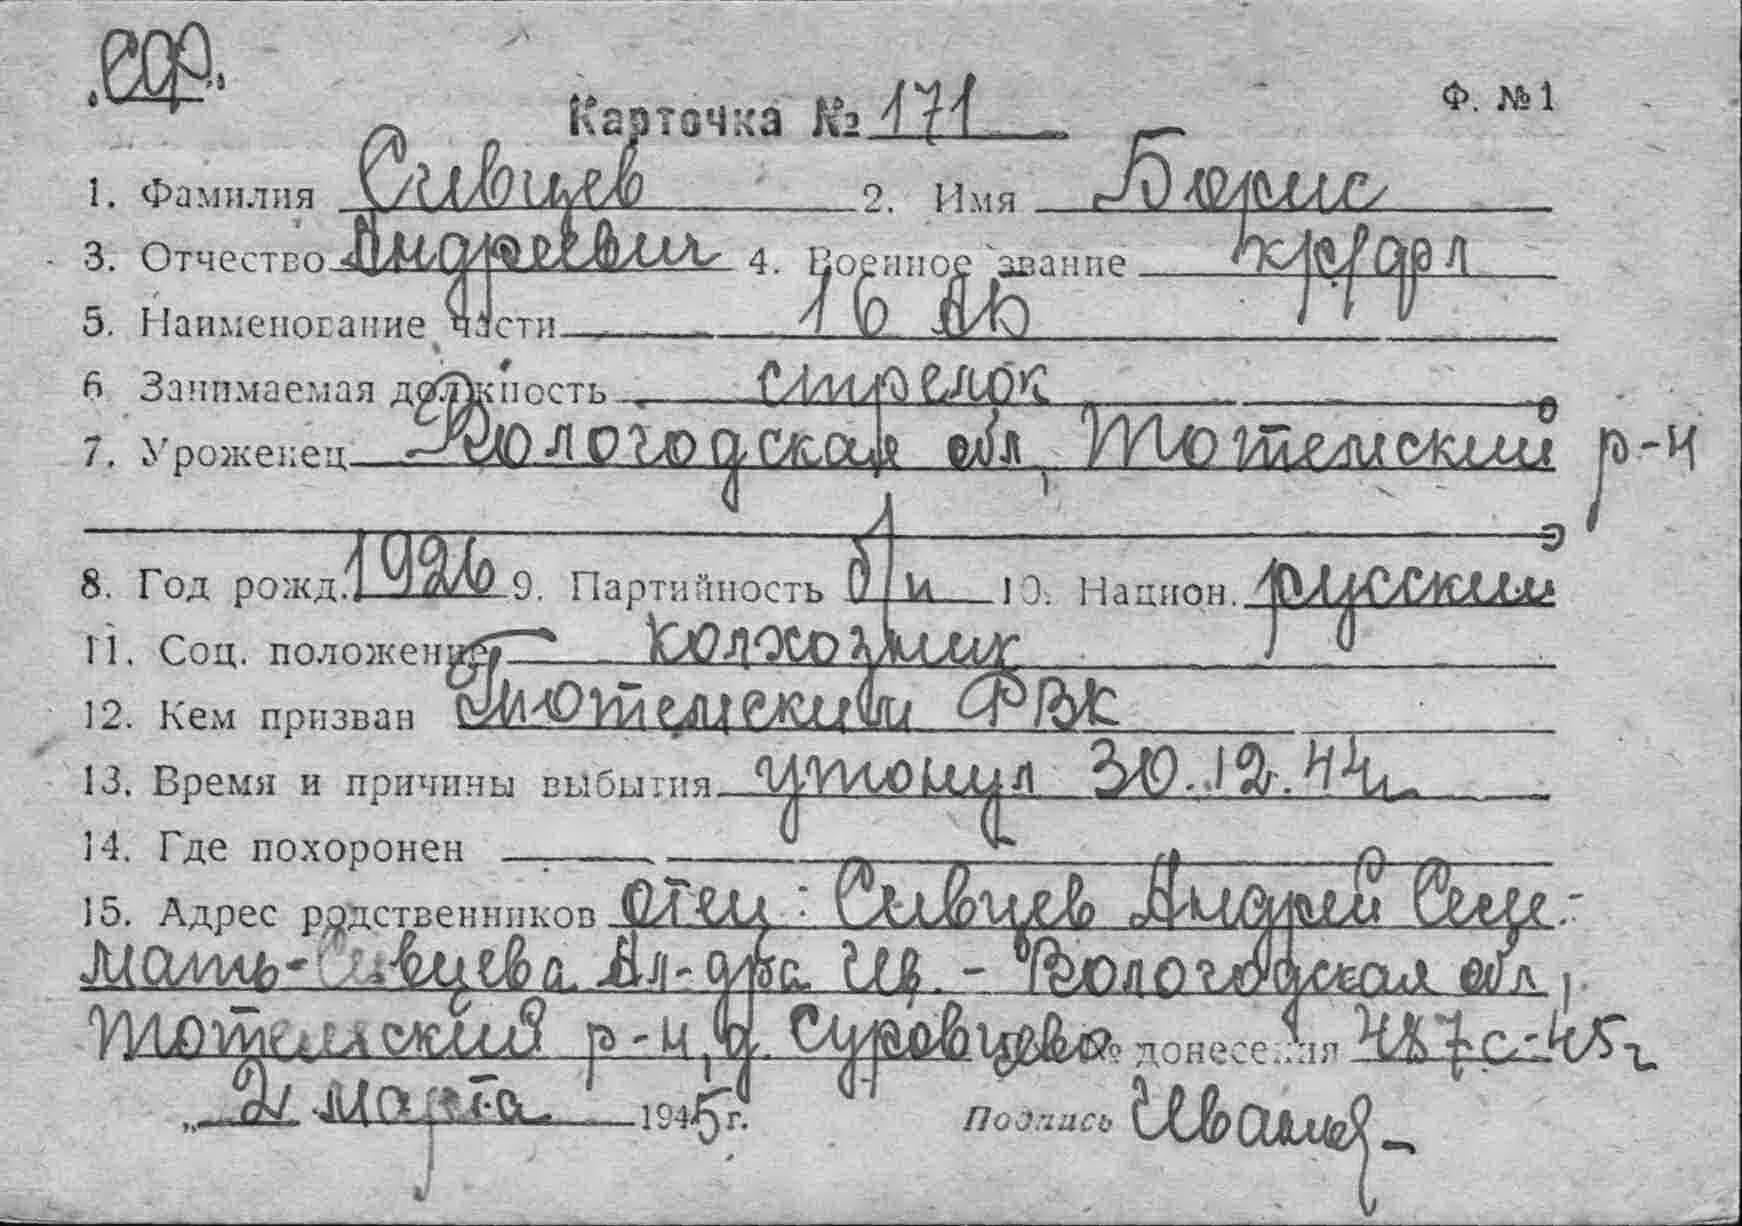 Ф. №1
Карточка № 171
1. Фамилия Сивцев 2. Имя Борис
3. Отчество Андреевич 4. Военное звание кр/фл
5. Наименование части 16
6 Занимаемая должность стрелок
7. Уроженец Вологодская обл, Тотемский р-н
8. Год рожд. 1926 9. Партийность б/п 10. Национ. русский
11. Соц. положение колхозник
12. Кем призван Тотемский РВК
13. Время и причины выбытия утонул 30.12.44г.
14. Где похоронен
15. Адрес родственников отец: Сивцев Андрей
мать-Сивцева Ал-дра Ив. - Вологодская обл,
Тотемский р-н, д. Суровцево № донесения 487с-45г
„ 2 марта 1945 г. Подпись